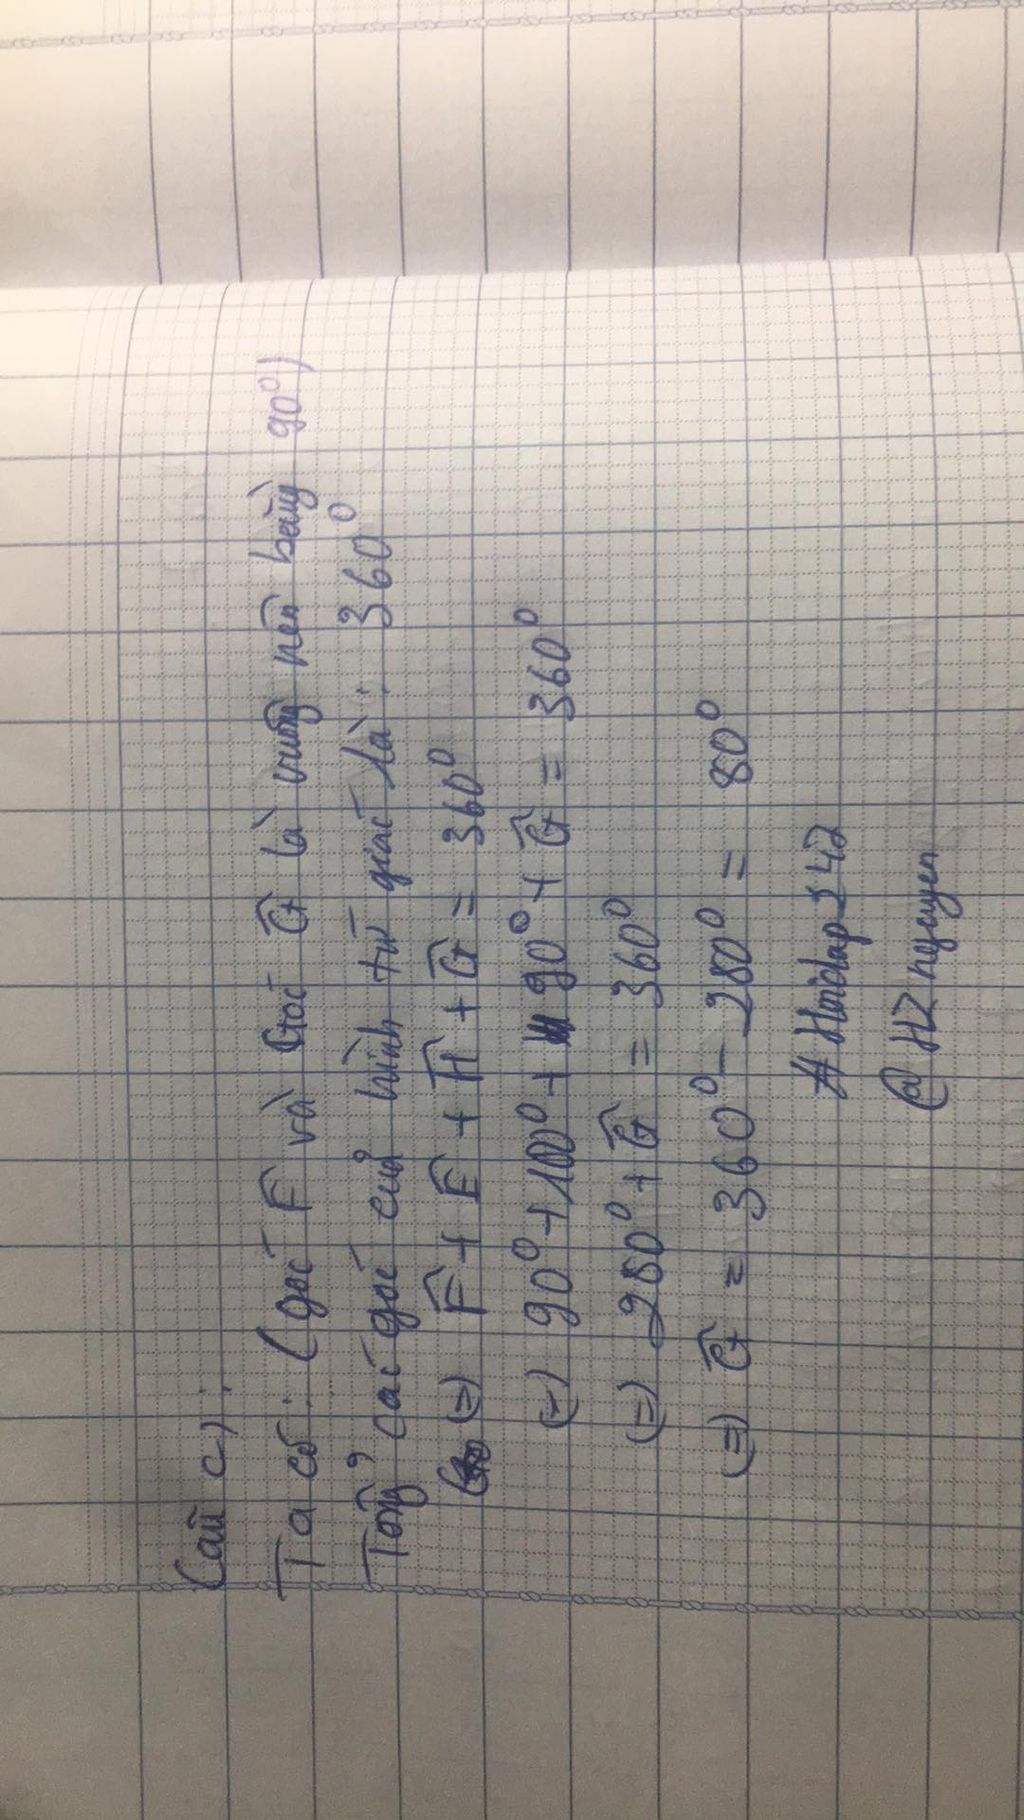 Câu c):
Ta có: (góc F và Góc Ĝ là vuông nên bằng 90⁰)
Tổng các góc của hình tứ giác là: 360⁰
(=) F̂ + Ê + Ĥ + Ĝ = 360⁰
(=) 90⁰ + 100⁰ + 90⁰ + Ĝ = 360⁰
(=) 280⁰ + Ĝ = 360⁰
(=) Ĝ = 360⁰ - 280⁰ = 80⁰
# Hoidap247
@ HZ nguyen